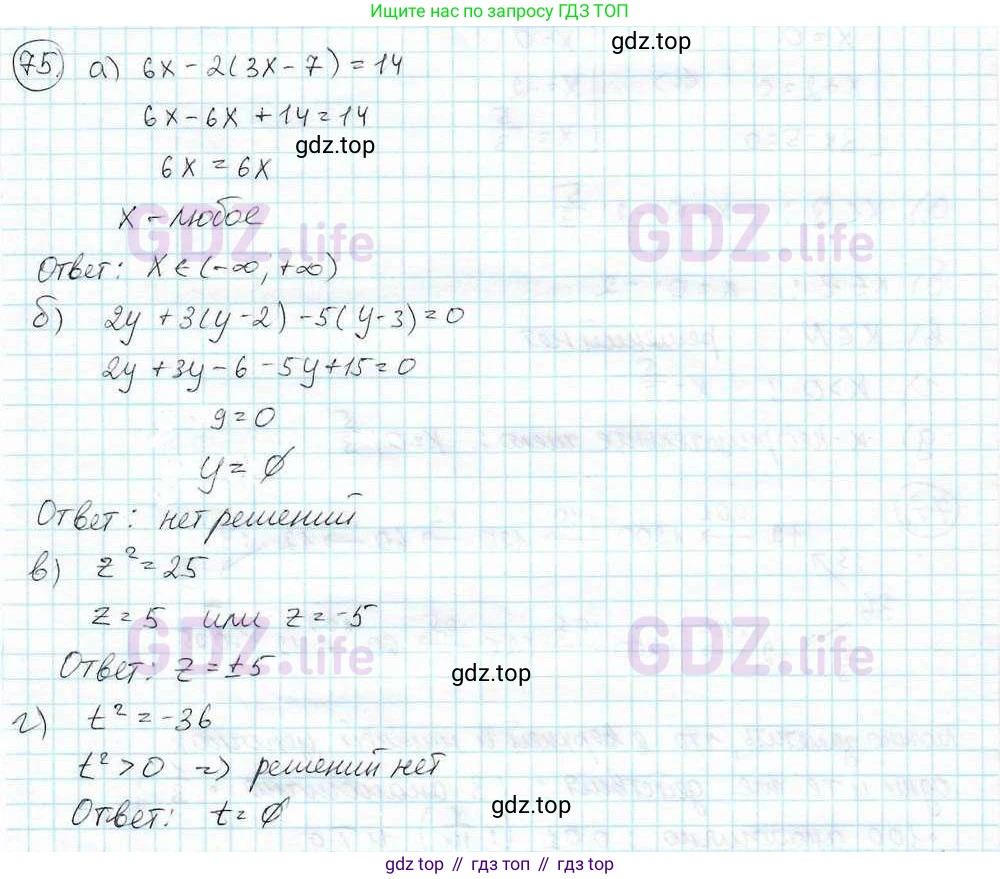 Ищите по запросу ГДЗ ТОП
gdz.top
75. а) 6x - 2(3x - 7) = 14
6x - 6x + 14 = 14
gdz.top
6x = 6x
x - любое
GDZ.life GDZ.life
Ответ: x ∈ (-∞, +∞)
б) 2y + 3(y - 2) - 5(y - 3) = 0
2y + 3y - 6 - 5y + 15 = 0
9 = 0
y = ∅
Ответ: нет решений
в) z² = 25
z = 5 или z = -5
GDZ.life GDZ.life
Ответ: z = ±5
gdz.top
г) t² = -36
t² > 0 => решений нет
gdz.top
Ответ: t = ∅
gdz top // гдз топ // gdz.top